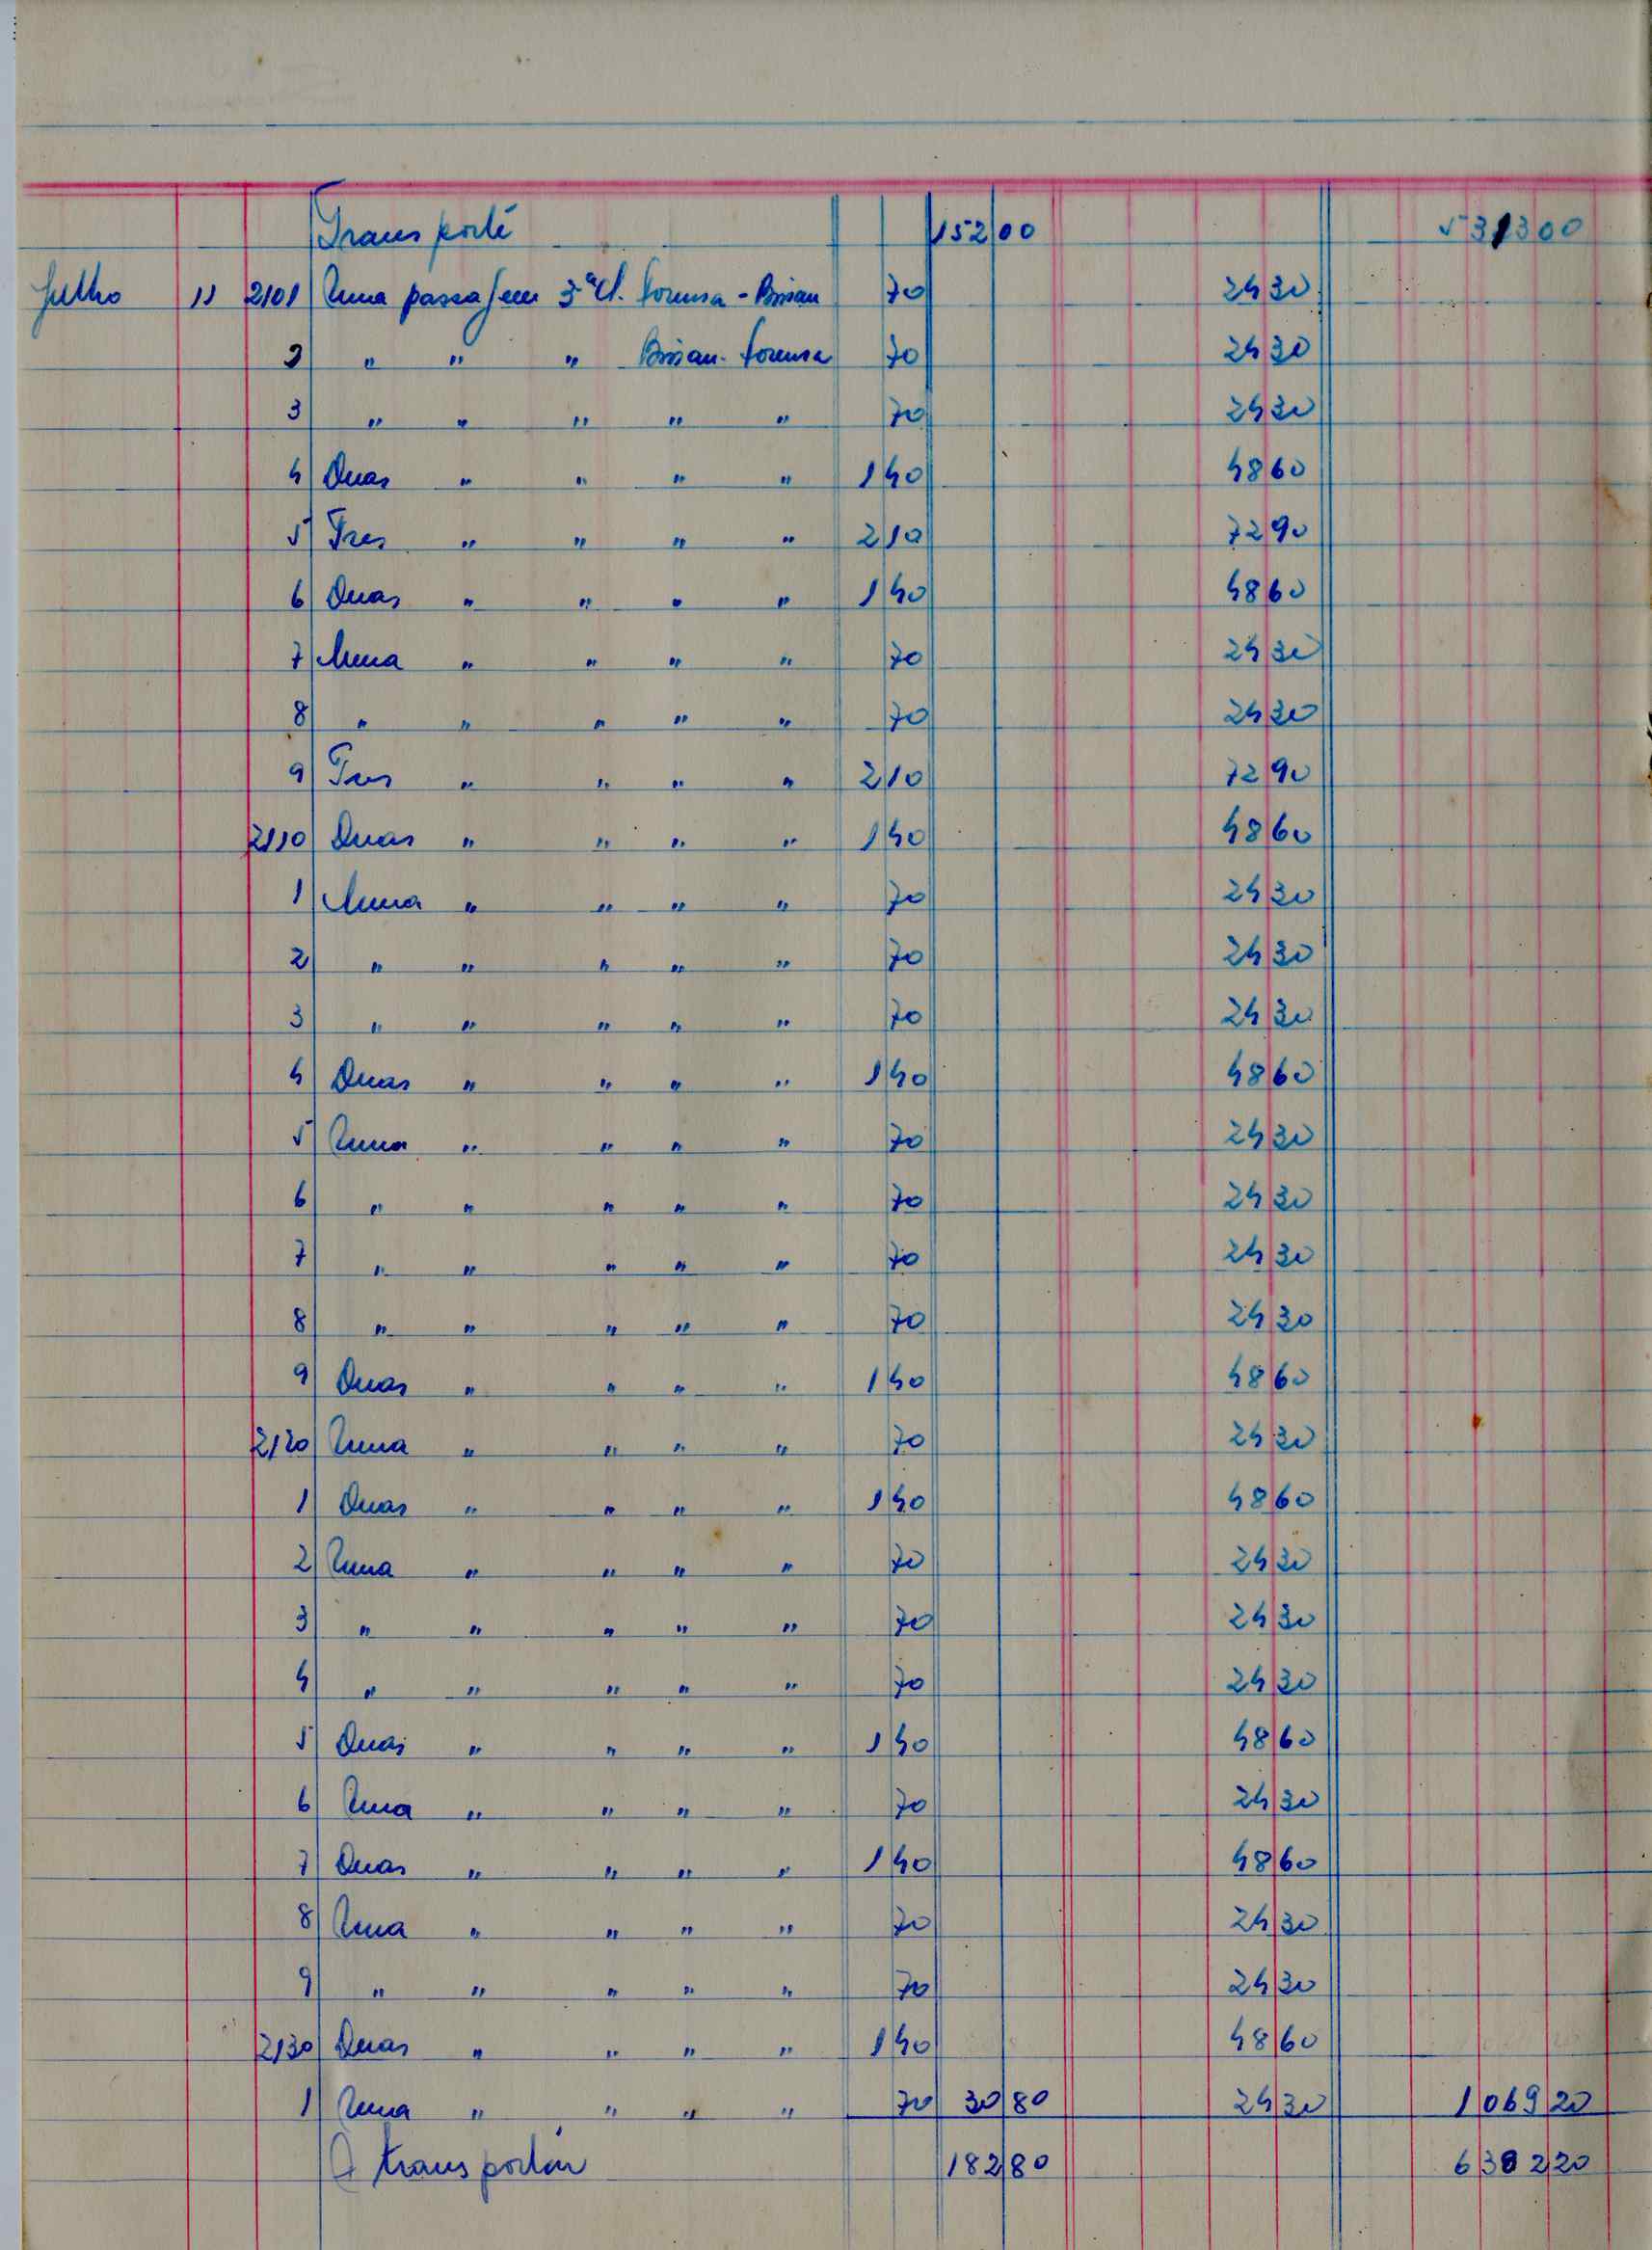 Transporte 152 00 531 300
Julho 11 2101 Uma passagem 3ª Cl. Formosa - Bissau 70 24 30
2 " " " Bissau - Formosa 70 24 30
3 " " " " " 70 24 30
4 Duas " " " " 140 48 60
5 Tres " " " " 210 72 90
6 Duas " " " " 140 48 60
7 Uma " " " " 70 24 30
8 " " " " " 70 24 30
9 Tres " " " " 210 72 90
2110 Duas " " " " 140 48 60
1 Uma " " " " 70 24 30
2 " " " " " 70 24 30
3 " " " " " 70 24 30
4 Duas " " " " 140 48 60
5 Uma " " " " 70 24 30
6 " " " " " 70 24 30
7 " " " " " 70 24 30
8 " " " " " 70 24 30
9 Duas " " " " 140 48 60
2120 Uma " " " " 70 24 30
1 Duas " " " " 140 48 60
2 Uma " " " " 70 24 30
3 " " " " " 70 24 30
4 " " " " " 70 24 30
5 Duas " " " " 140 48 60
6 Uma " " " " 70 24 30
7 Duas " " " " 140 48 60
8 Uma " " " " 70 24 30
9 " " " " " 70 24 30
2130 Duas " " " " 140 48 60
1 Uma " " " " 70 30 80 24 30 1 069 20
A transportar 182 80 6 38 2 20